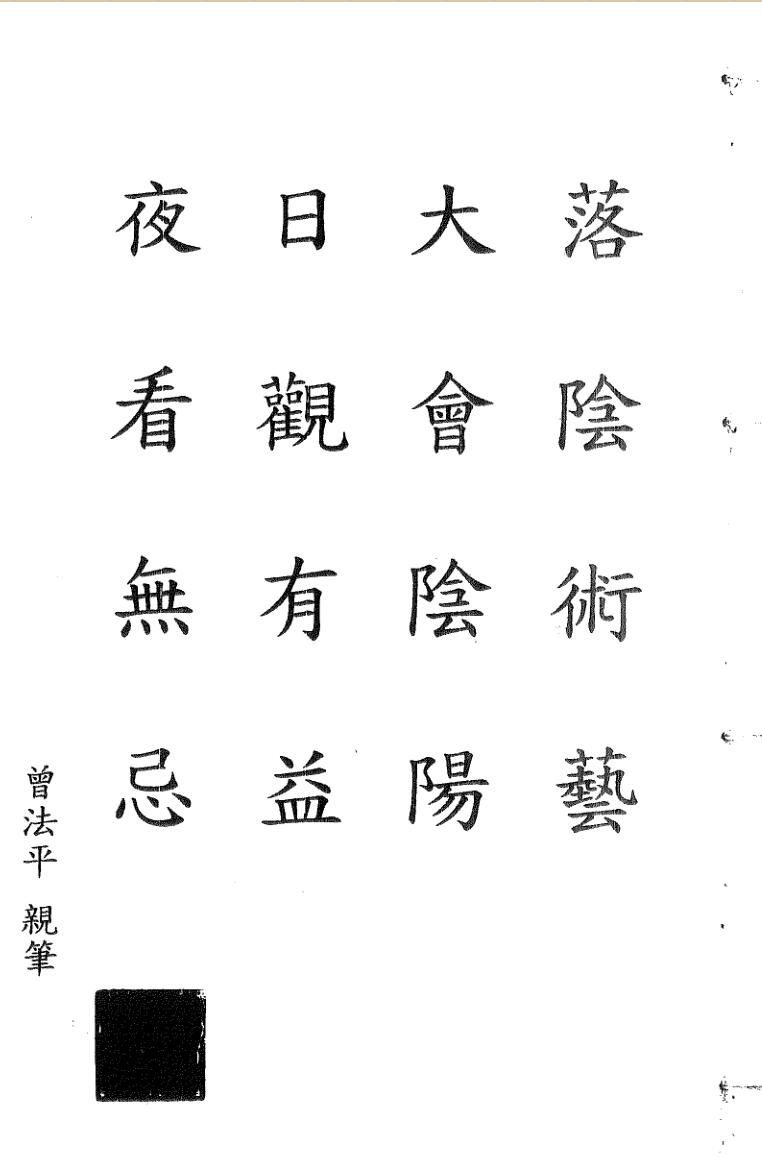 落陰術藝
大會陰陽
日觀有益
夜看無忌
曾法平 親筆